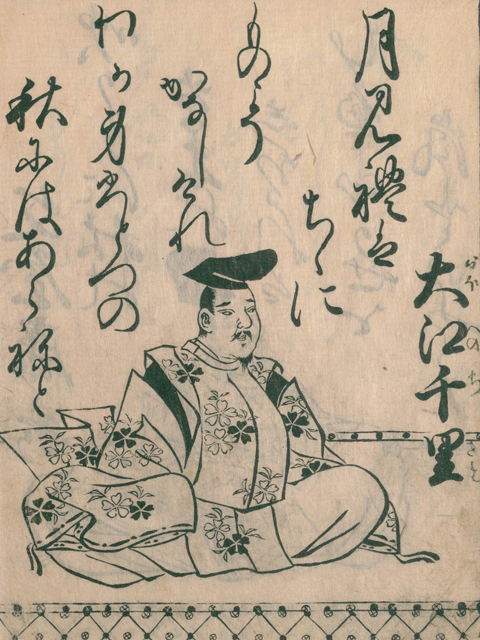 大江千里
おほ のちさと
月見れは
ちゝに
ものこそ
かなしけれ
わか身ひとつの
秋にはあらねと